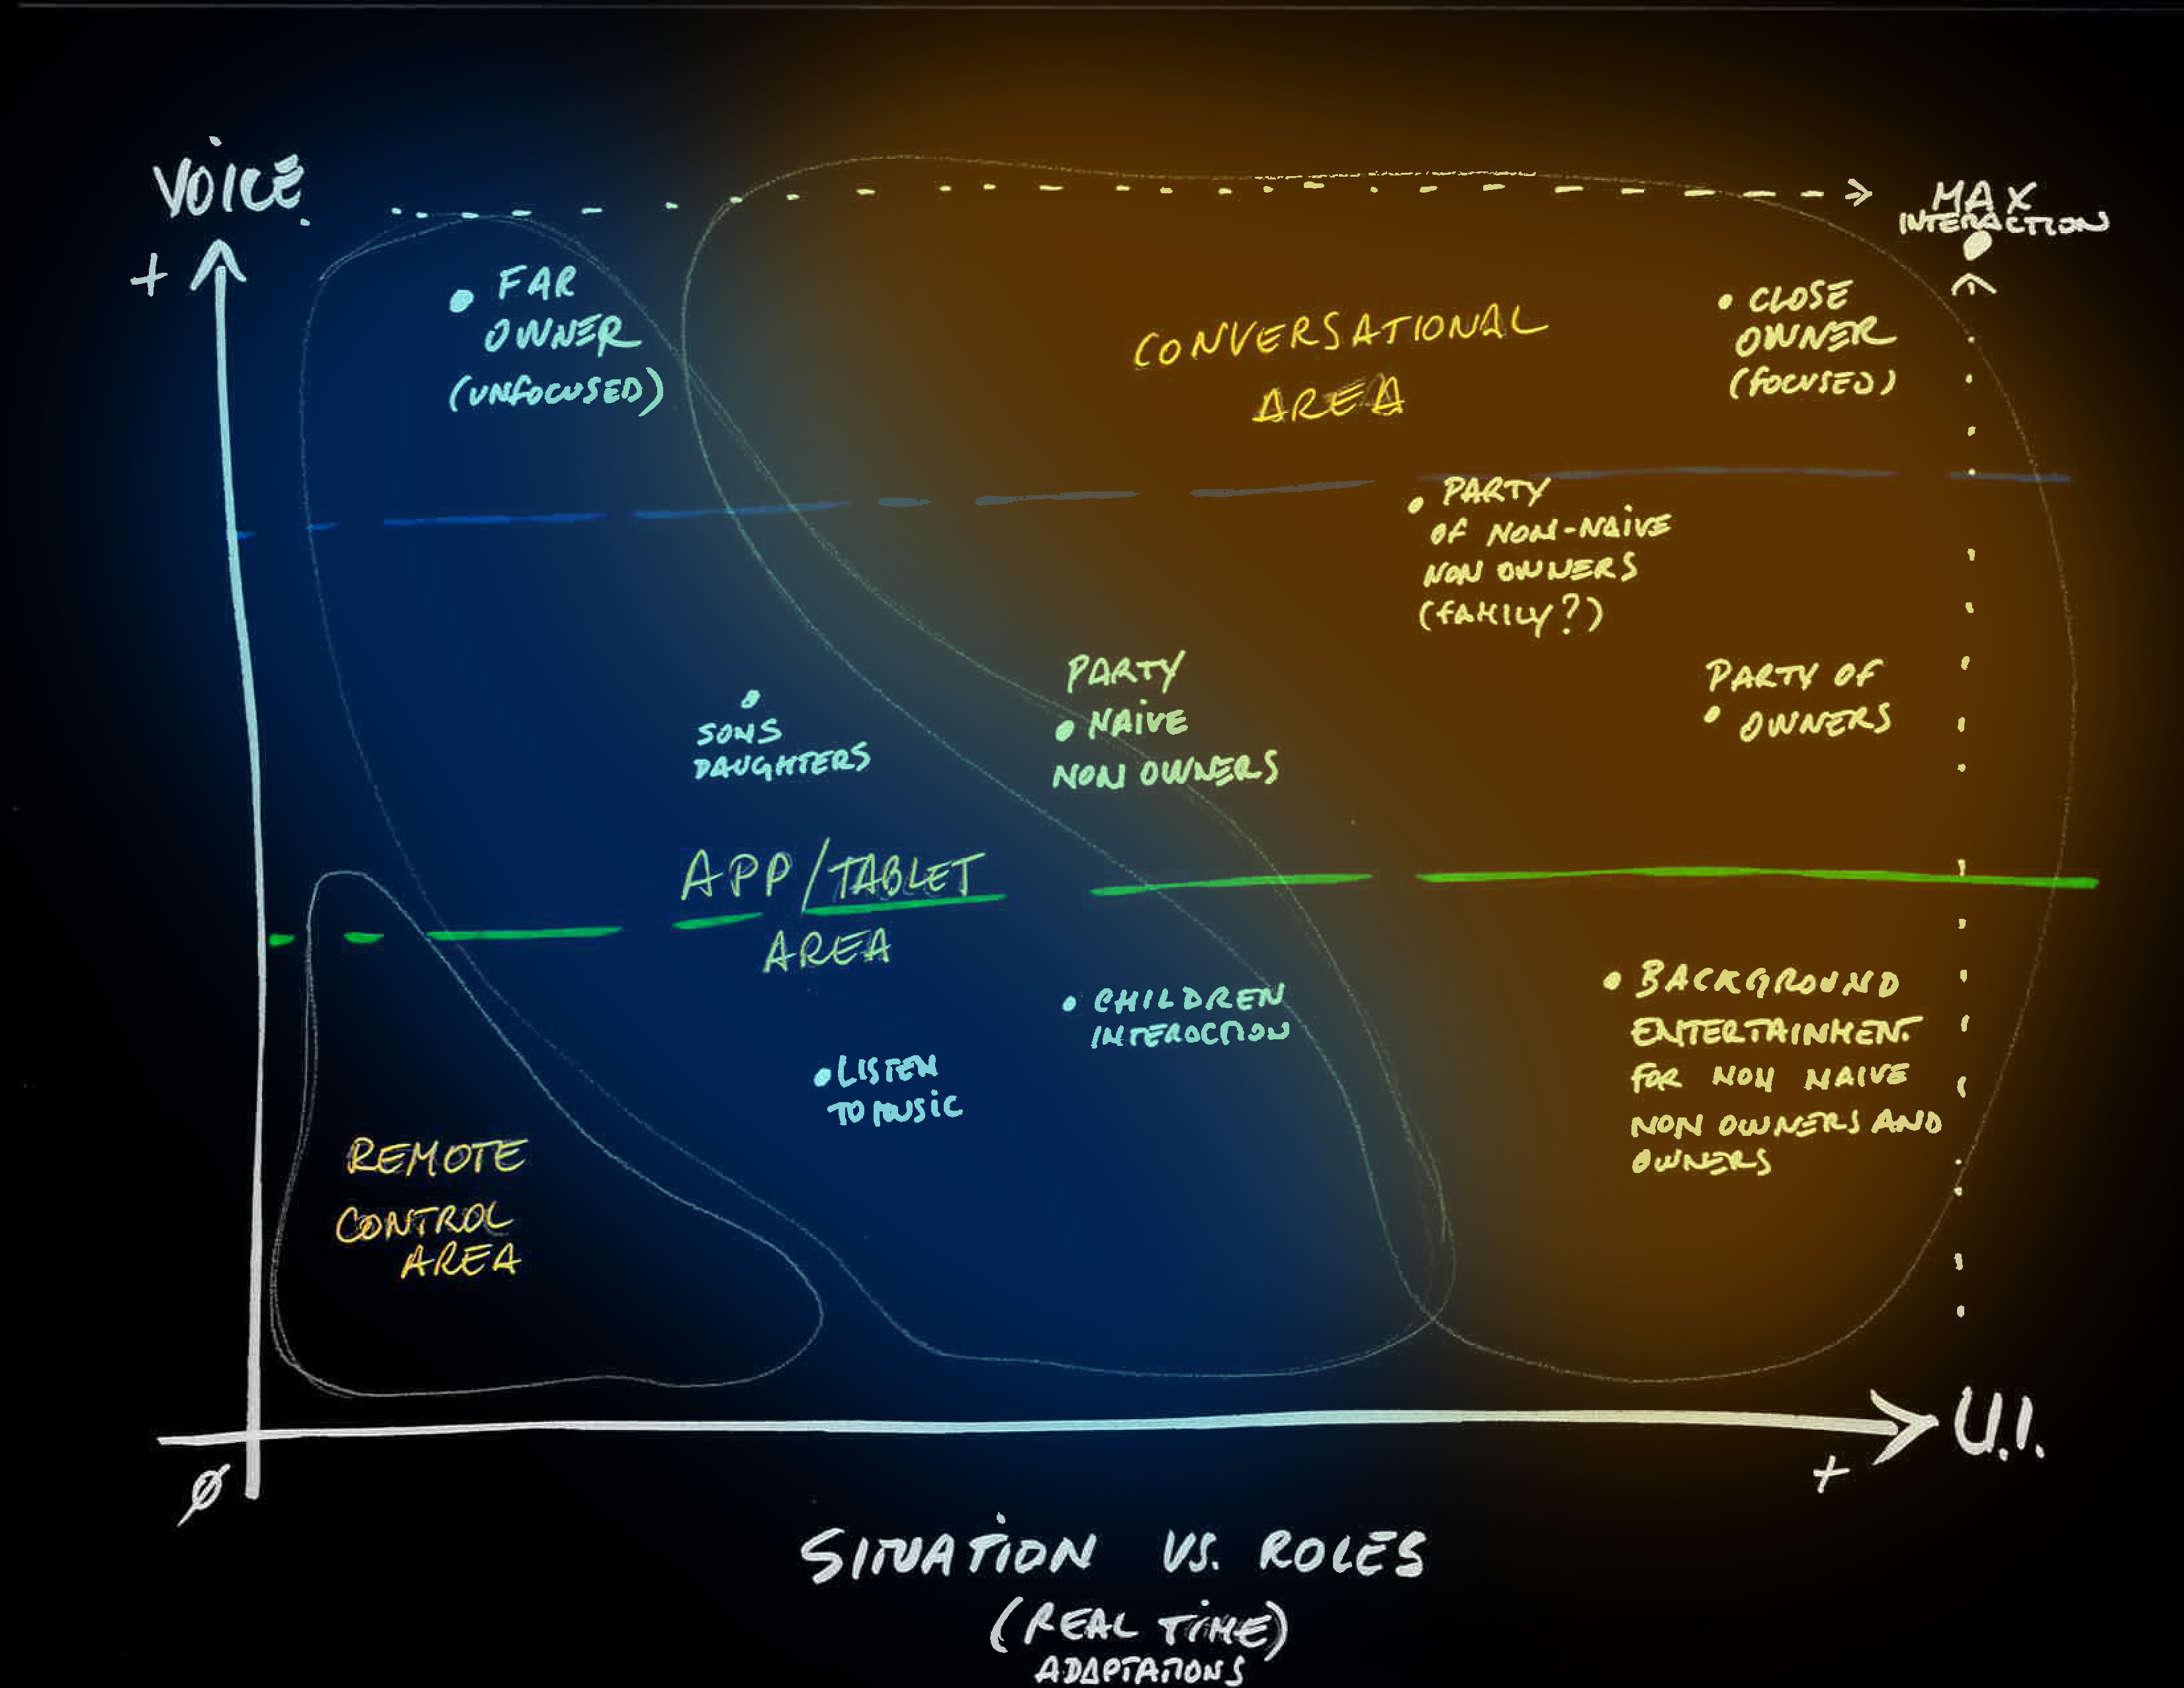 VOICE
+
MAX
INTERACTION
• FAR
OWNER
(UNFOCUSED)
CONVERSATIONAL
AREA
• CLOSE
OWNER
(FOCUSED)
• PARTY
OF NON-NAIVE
NON OWNERS
(FAMILY?)
SONS
DAUGHTERS
PARTY
• NAIVE
NON OWNERS
PARTY OF
• OWNERS
APP/TABLET
AREA
• CHILDREN
INTERACTION
• LISTEN
TO MUSIC
• BACKGROUND
ENTERTAINMENT
FOR NON NAIVE
NON OWNERS AND
OWNERS
REMOTE
CONTROL
AREA
U.I.
+
Ø
SITUATION VS. ROLES
(REAL TIME)
ADAPTATIONS